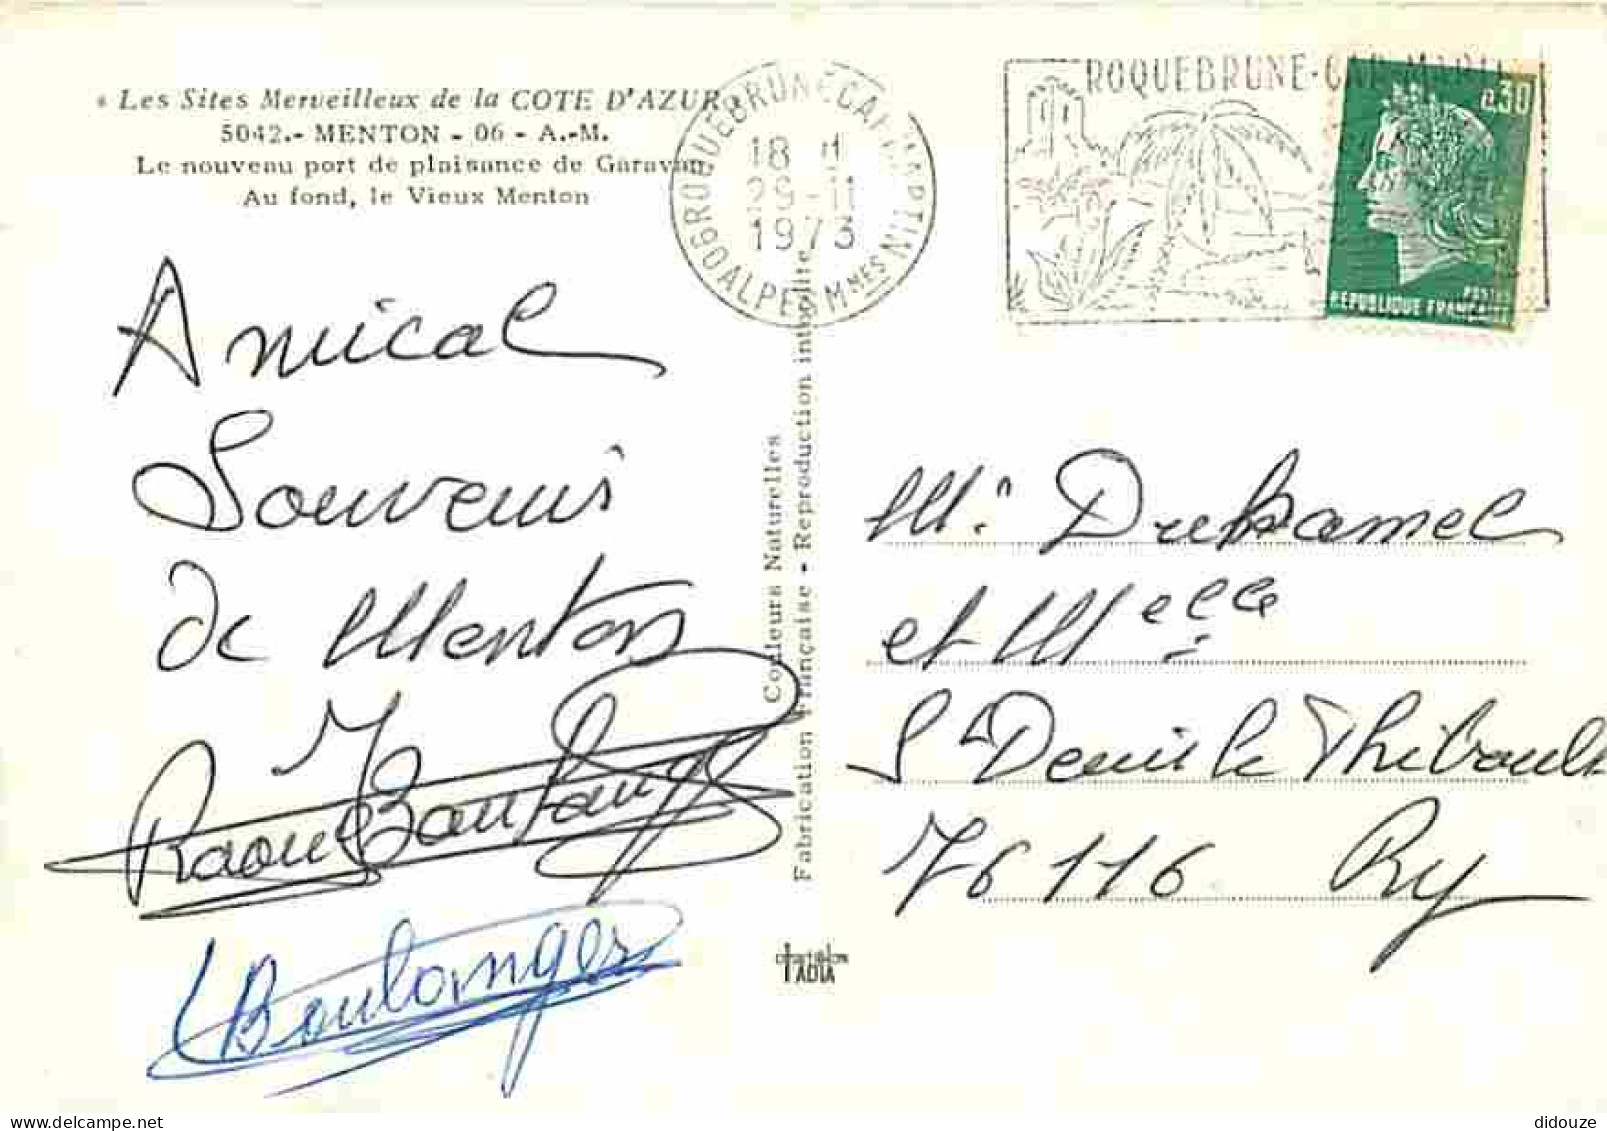 « Les Sites Merveilleux de la COTE D'AZUR »
5042.- MENTON - 06 - A.-M.
Le nouveau port de plaisance de Garavan
Au fond, le Vieux Menton
Amical
Souvenir
de Menton
Raoul Boulanger
Boulanger
Couleurs Naturelles
Fabrication Française - Reproduction interdite
TADIA
06 ROQUEBRUNE CAP MARTIN
18 H
1973
ALPES MMES
ROQUEBRUNE-CAP-MARTIN
0,30
POSTES
REPUBLIQUE FRANÇAISE
Mr Duhamel
et Melle
St Denis le Thiboult
76116 Ry
didouze